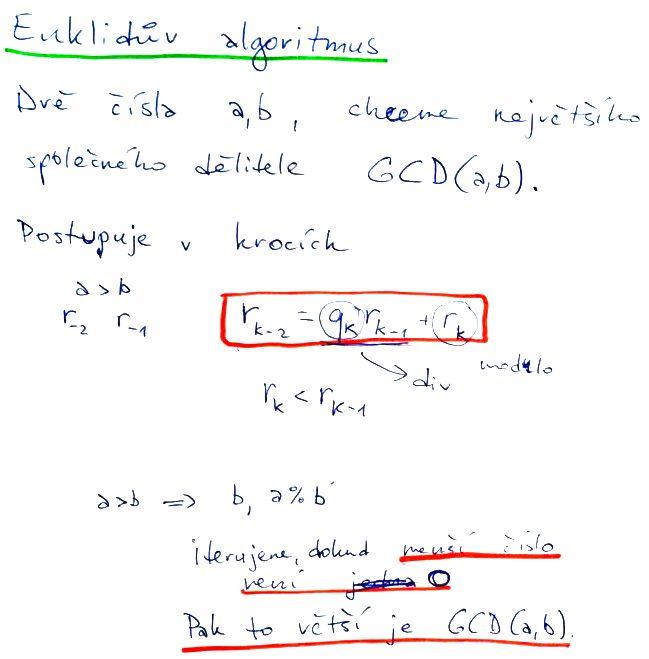 Euklidův algoritmus
Dvě čísla a,b, chceme největšího
společného dělitele GCD(a,b).
Postupuje v krocích
a>b
r₋₂ r₋₁ rₖ₋₂ = qₖ rₖ₋₁ + rₖ
div modulo
rₖ < rₖ₋₁
a>b => b, a%b
iterujeme, dokud menší číslo
není 0
Pak to větší je GCD(a,b).